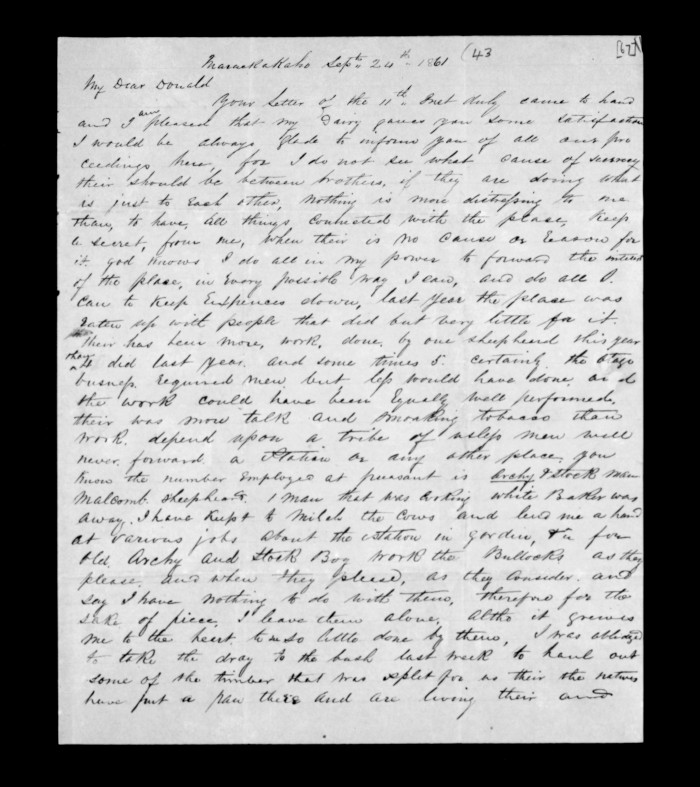 Maraekakaho Septr 24th 1861 (43 [67]
My Dear Donald
Your Letter of the 11th Inst duly came to hand
and I am pleased that my Dairy gives you some satisfaction
I would be always glade to inform you of all our pro
ceedings here, for I do not see what cause of secrecy
their should be between brothers, if they are doing what
is just to Each other, Nothing is more distressing to me
than, to have, all things conected with the plase, Keep
a secret, from me, when their is no cause or reason for
it. god knows I do all in my power to forward the interest
of the plase, in Every possible way I can, and do all I
can to Keep Expences down, last year the plase was
Eaten up with people that did but very little for it.
Their has been more, work, done, by one sheepheard this year
than 4 did last year. and some times 5. certainly the
busness required men, but less would have done, and
the work could have been Equally well performed,
their was more talk and smoaking tobacco than
work. depend upon a tribe of usless men will
never, forward a Station or any other place, you
Know the number Employed at preasant is Archy & Stock man
Malcomb. sheepheard. 1 man that was Carting while Baker was
away. I have Kept to Milch the Cows and lend me a hand
at various jobs about the station in gorden, &c for
old, Archy and Stock Boy work the Bullocks as they
please, and when they please, as they Consider. and
say I have nothing to do with them, therefore for the
sake of piece, I leave them alone, Altho it greives
me to the heart to see so little done by them, I was obliged
to take the dray to the bush last week to haul out
some of the timber that was split for us their the natives
have put a paw there and are living their and